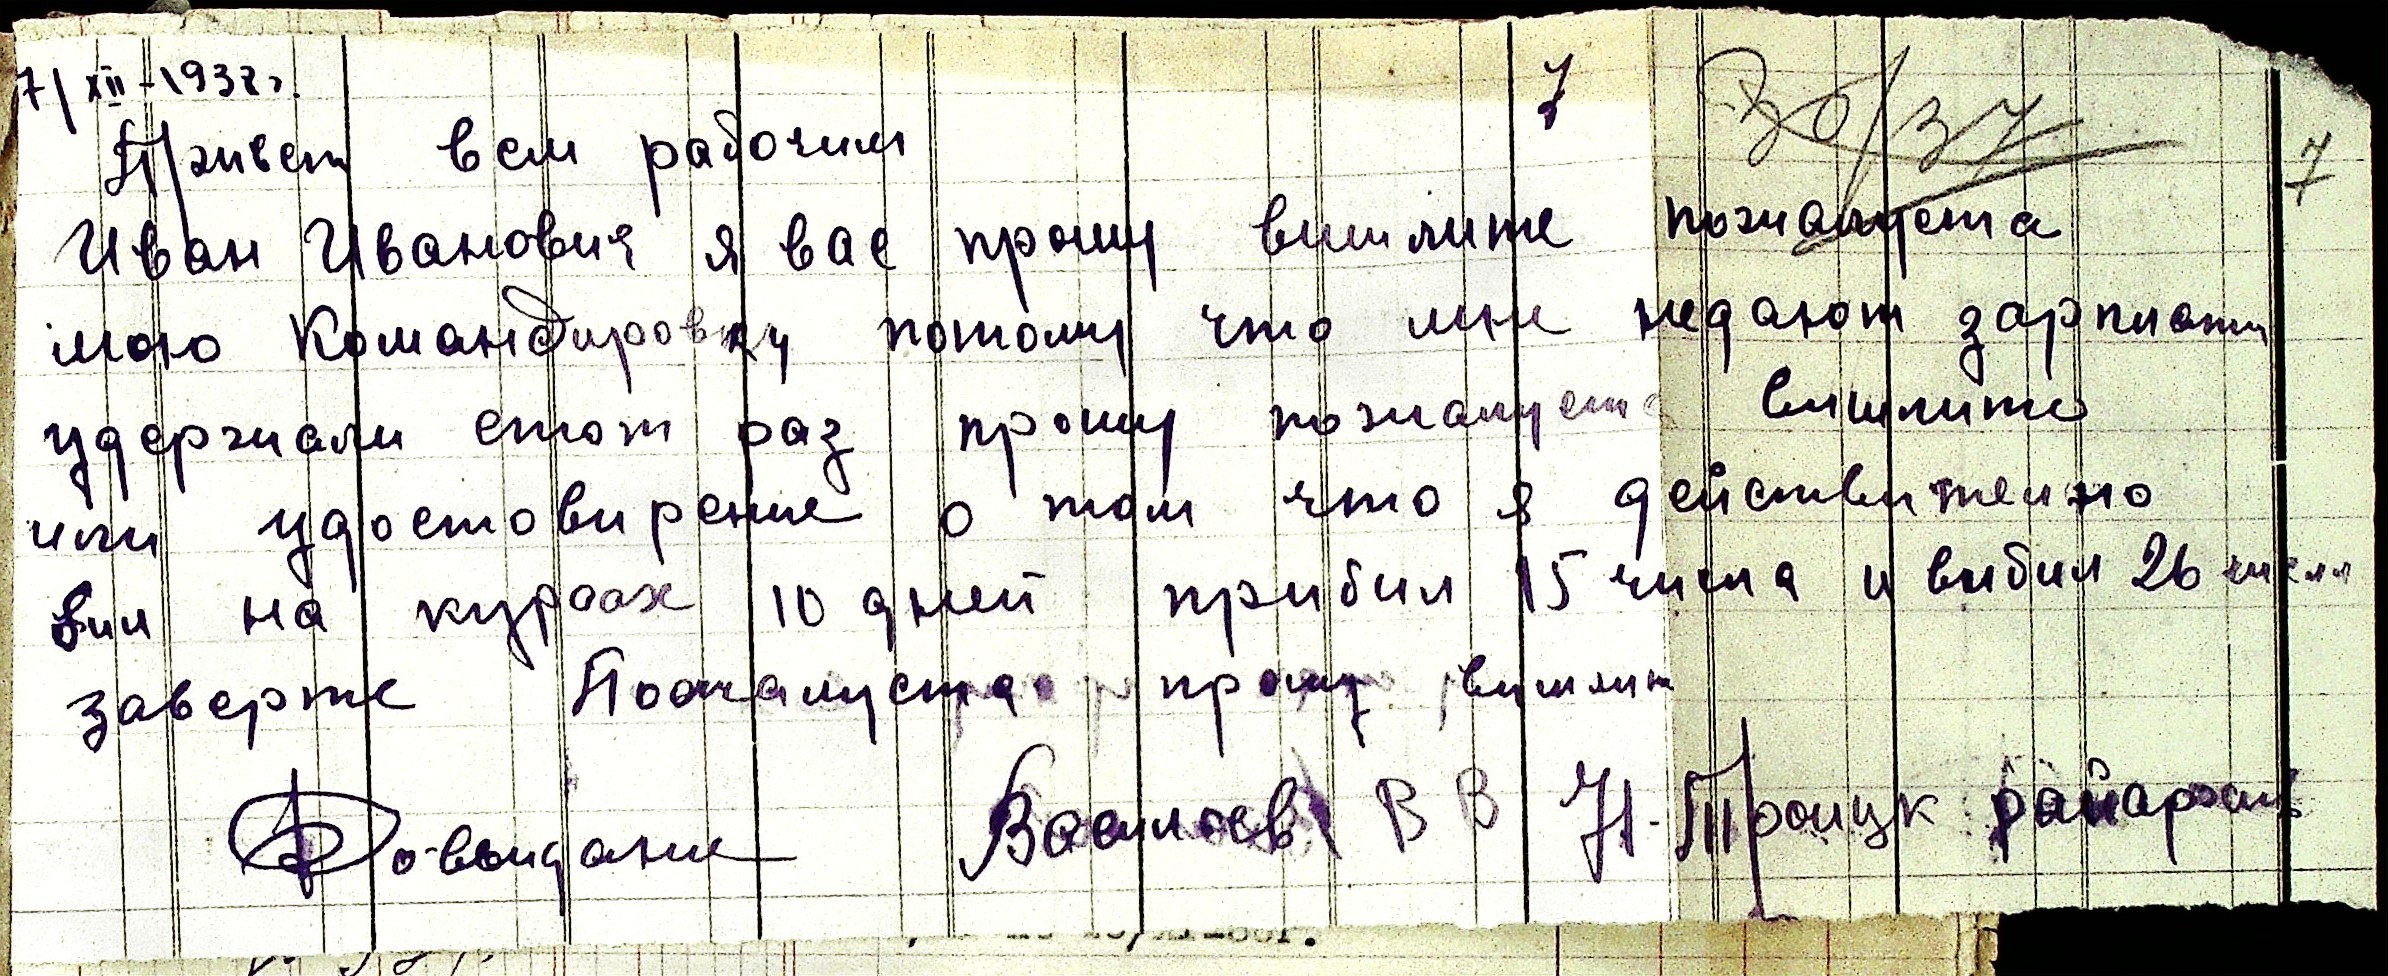 7/XII-1937г.
7
30/37
7
Привет всем рабочим
Иван Иванович я вас прошу вишлите пожалуста
мою командировку потому что мне недают зарплати
удержали етот раз прошу пожалуста вишлите
или удостовирение о том что я действително
бил на курсах 10 дней прибил 15 числа и вибил 26 числа
заверте Пожалуста прошу вишлит
До-выидание Васильев В В Н-Троицк райархив